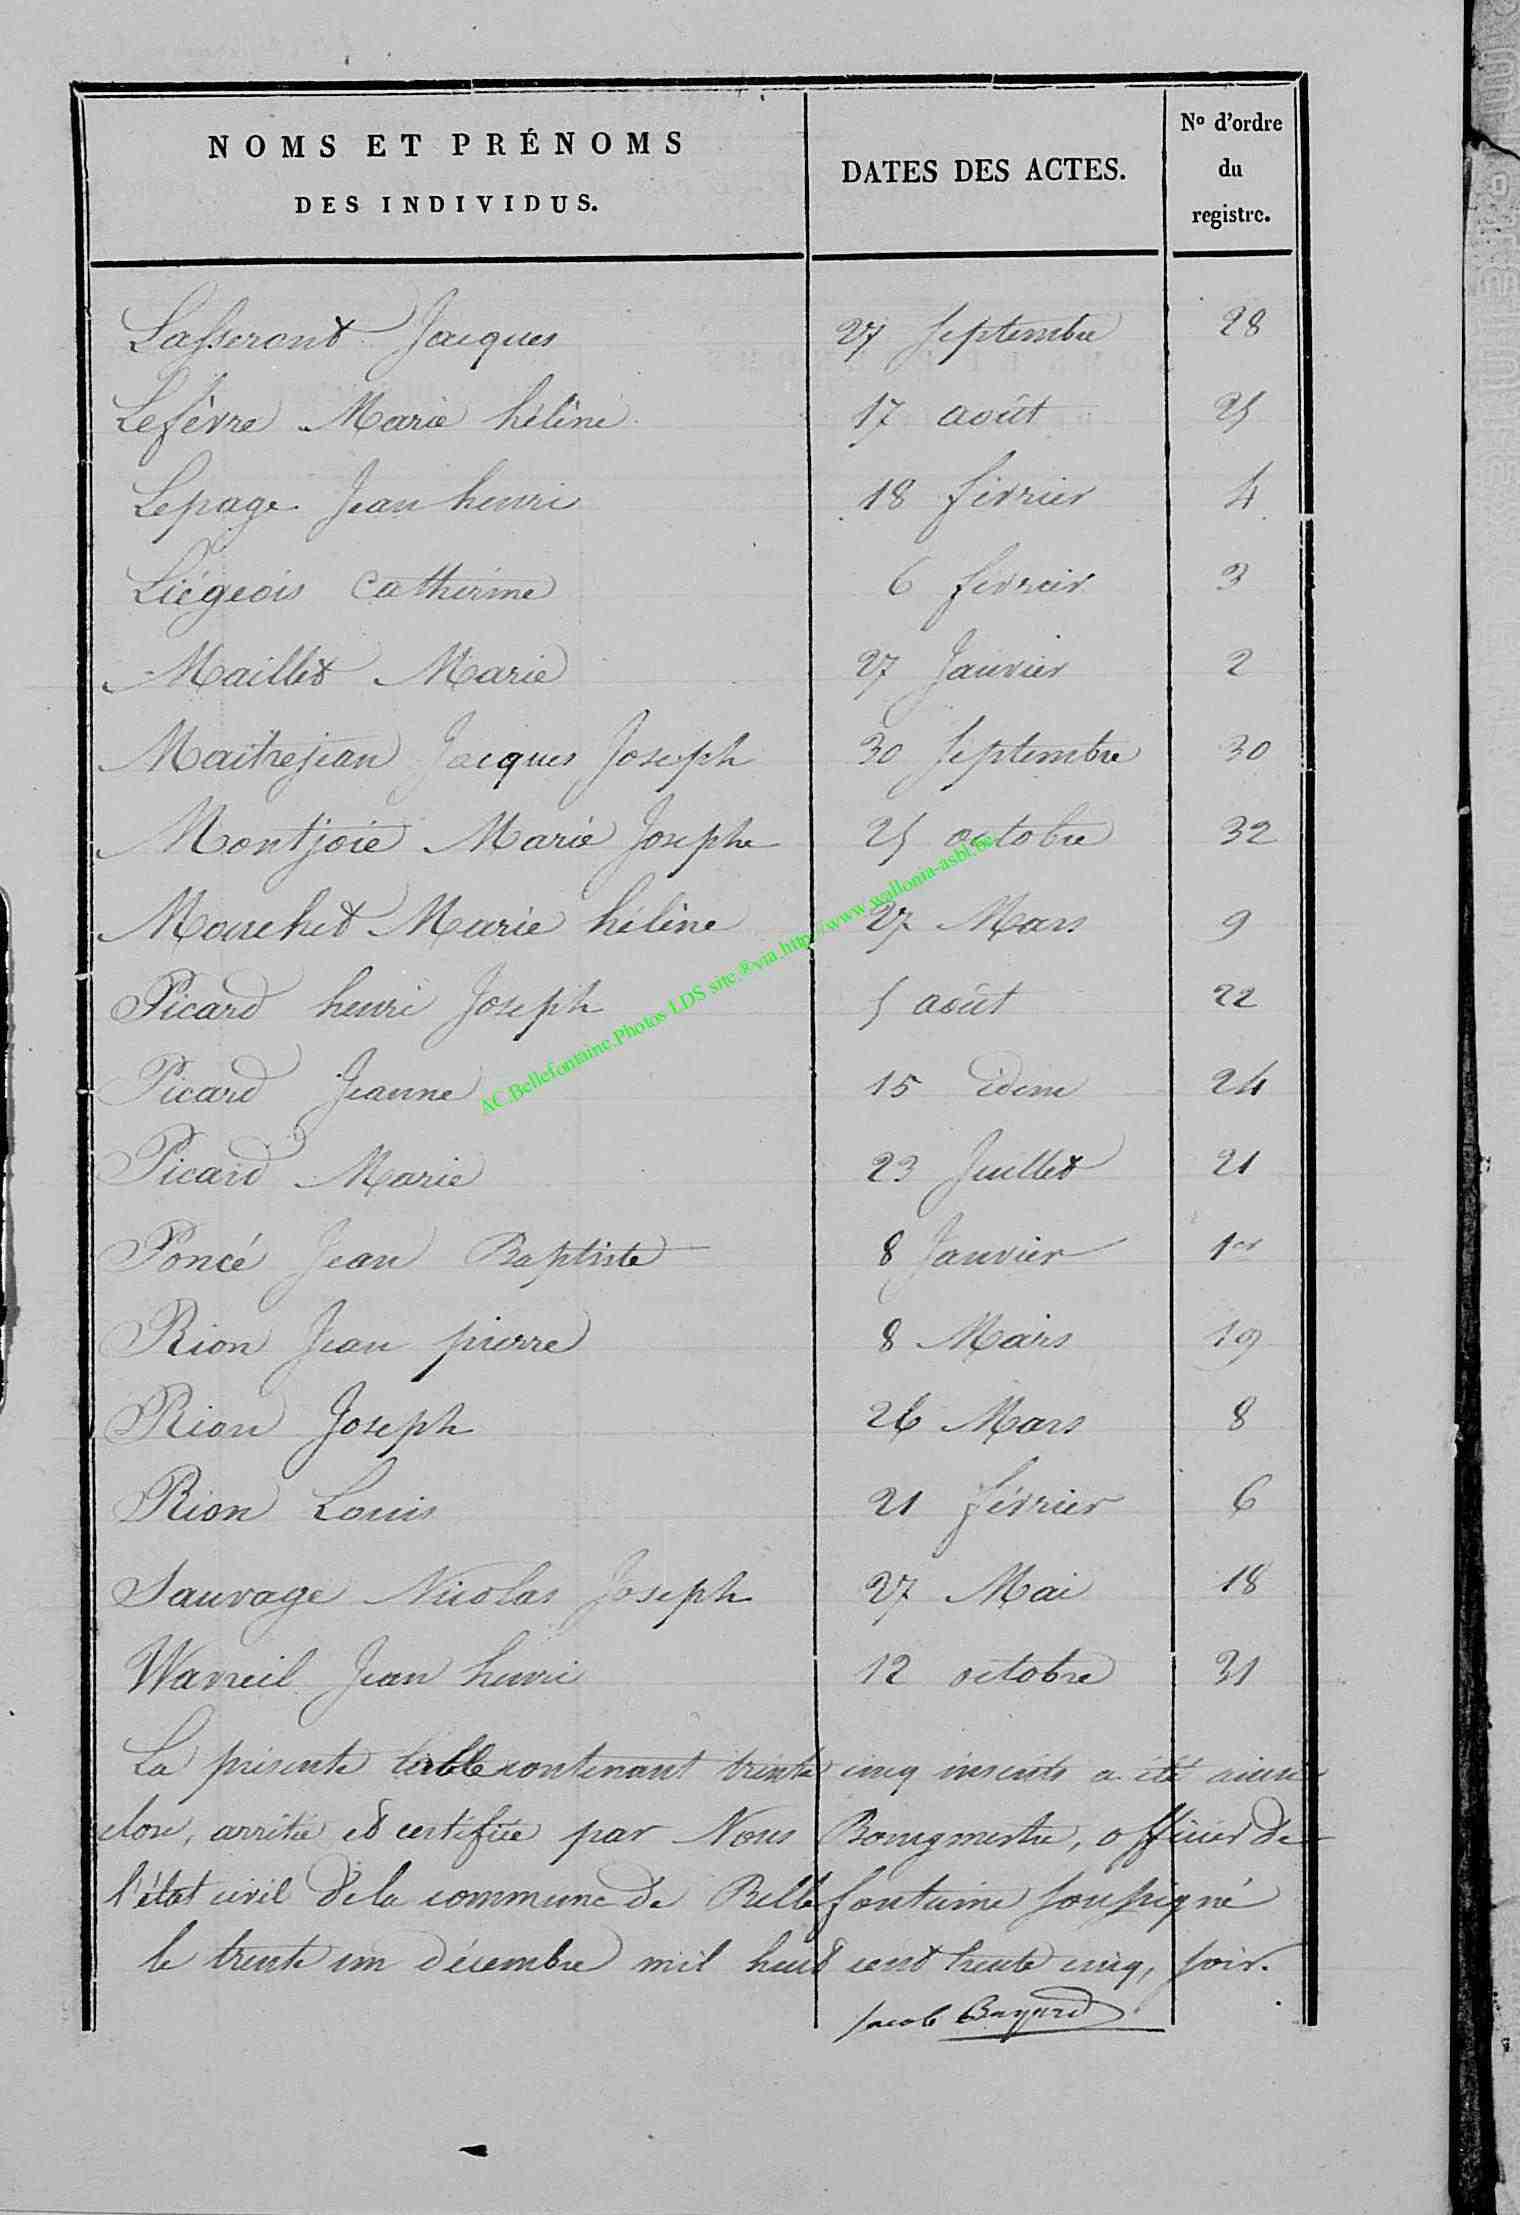 NOMS ET PRÉNOMS
DES INDIVIDUS.
DATES DES ACTES.
No d'ordre
du
registre.
Lasseront Jacques 27 Septembre 28
Lefèvre Marie hélène 17 août 25
Lepage Jean henri 18 février 4
Liégeois Catherine 6 février 3
Maillet Marie 27 Janvier 2
Maitrejean Jacques Joseph 30 Septembre 30
Montjoie Marie Josephe 25 octobre 32
Mouchet Marie hélène 27 Mars 9
Picard henri Joseph 5 août 22
Picard Jeanne 15 idem 24
Picard Marie 23 Juillet 21
Poncé Jean Baptiste 8 Janvier 1er
Rion Jean pierre 8 Mars 19
Rion Joseph 26 Mars 8
Rion Louis 21 février 6
Sauvage Nicolas Joseph 27 Mai 18
Wavreil Jean henri 12 octobre 31
La présente table contenant trente cinq inscrits a été ainsi
close, arrêtée et certifiée par Nous Bourgmestre, officier de
l'état civil de la commune de Bellefontaine soussigné
le trente un décembre mil huit cent trente cinq, soir.
Jacob Bayard
AC.Bellefontaine.Photos LDS site ®via http://www.wallonia-asbl.be